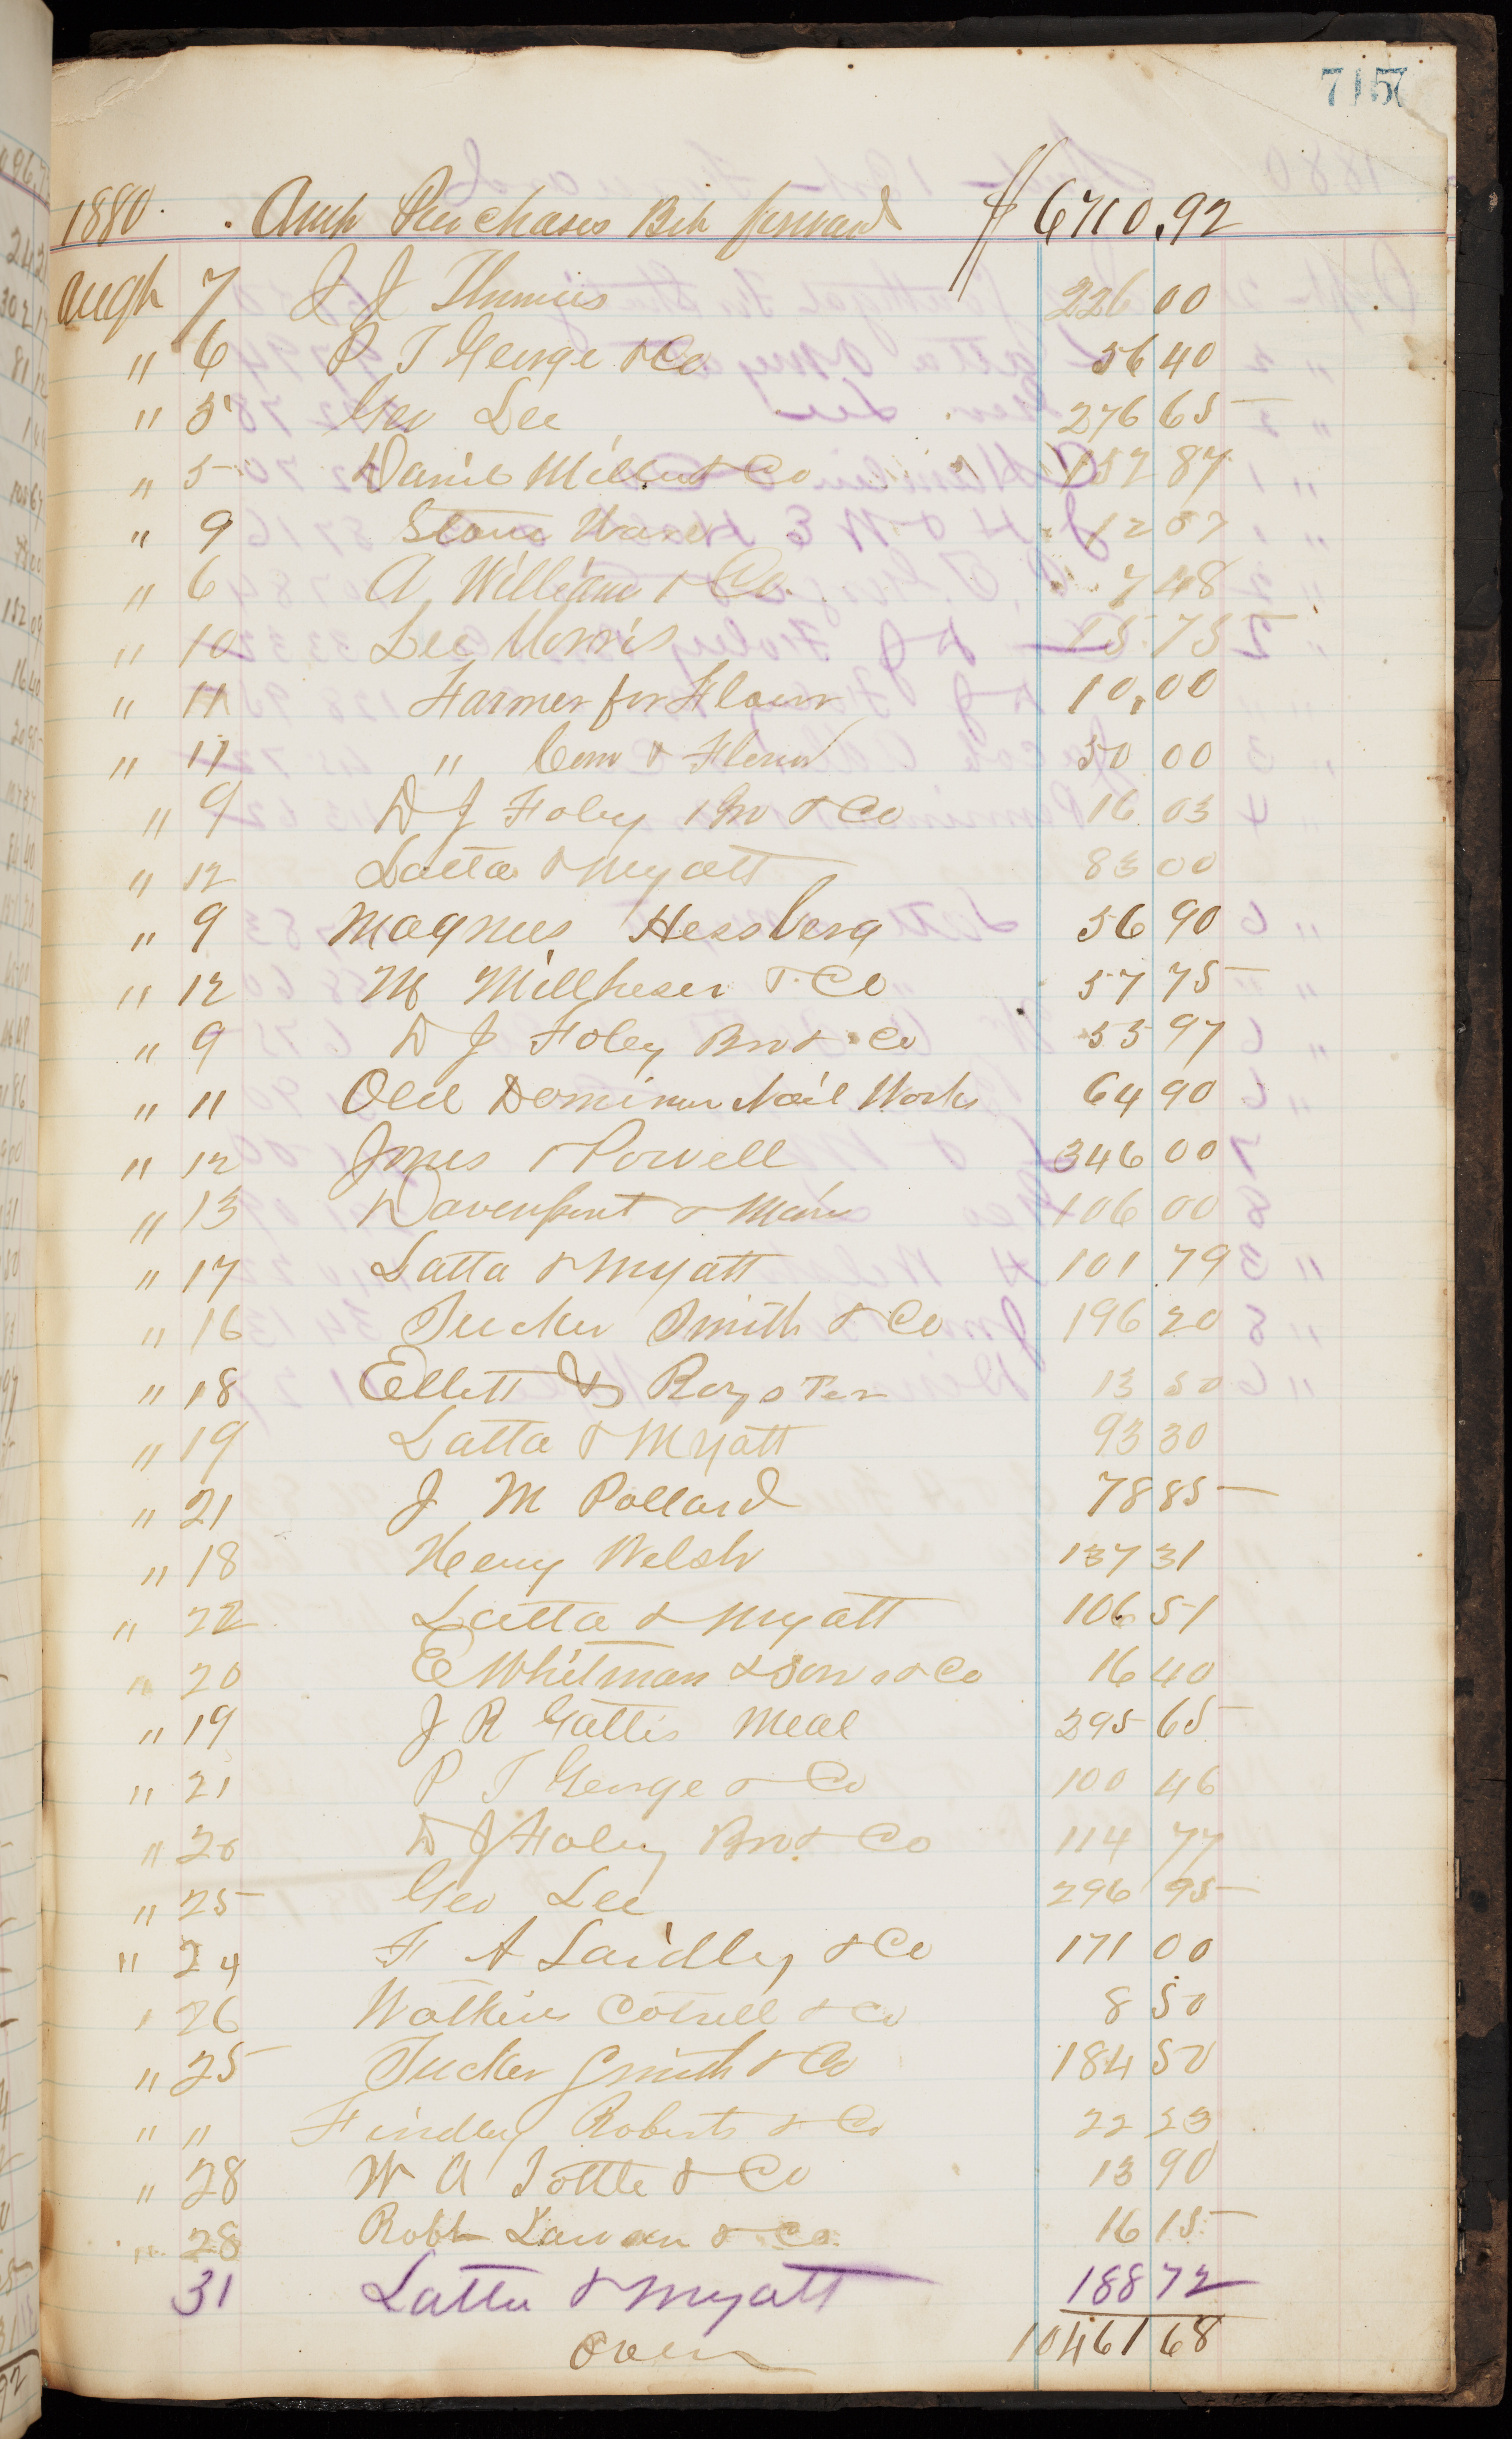 7157
1880. Amt Purchases Brt forward $6710.92
Augt 7 J J Thomas 226 00
" 6 P T George & Co 56 40
" 5 Geo Lee 276 65
" 5 Daniel Miller & Co 157 87
" 9 Stone Ware 12 57
" 6 A Williams & Co. 7 48
" 10 Lee Morris 15 75
" 11 Farmer for Flour 10,00
" 11 " Corn & Flour 50 00
" 9 D J Foley Bro & Co 16 03
" 12 Latta & Myatt 83 00
" 9 Magnus Hessberg 56 90
" 12 M Millheser & Co 57 75
" 9 D J Foley Bro & Co 55 97
" 11 Old Dominion Nail Works 64 90
" 12 Jones & Powell 346 00
" 13 Davenport & Morris 106 00
" 17 Latta & Myatt 101 79
" 16 Tucker Smith & Co 196 20
" 18 Ellett & Royster 13 50
" 19 Latta & Myatt 93 30
" 21 J M Pollard 78 85
" 18 Henry Welsh 137 31
" 22 Latta & Myatt 106 51
" 20 E Whitman & Sons & Co 16 40
" 19 J R Gattis Meal 295 65
" 21 P T George & Co 100 46
" 20 D J Foley Bro & Co 114 77
" 25 Geo Lee 296 95
" 24 F A Laidley & Co 171 00
" 26 Watkins Cottrell & Co 8 50
" 25 Tucker Smith & Co 184 50
" " Findley Roberts & Co 22 23
" 28 W A Tottle & Co 13 90
" 28 Robt & Co 16 15
31 Latta & Myatt 188 72
Over 10461 68